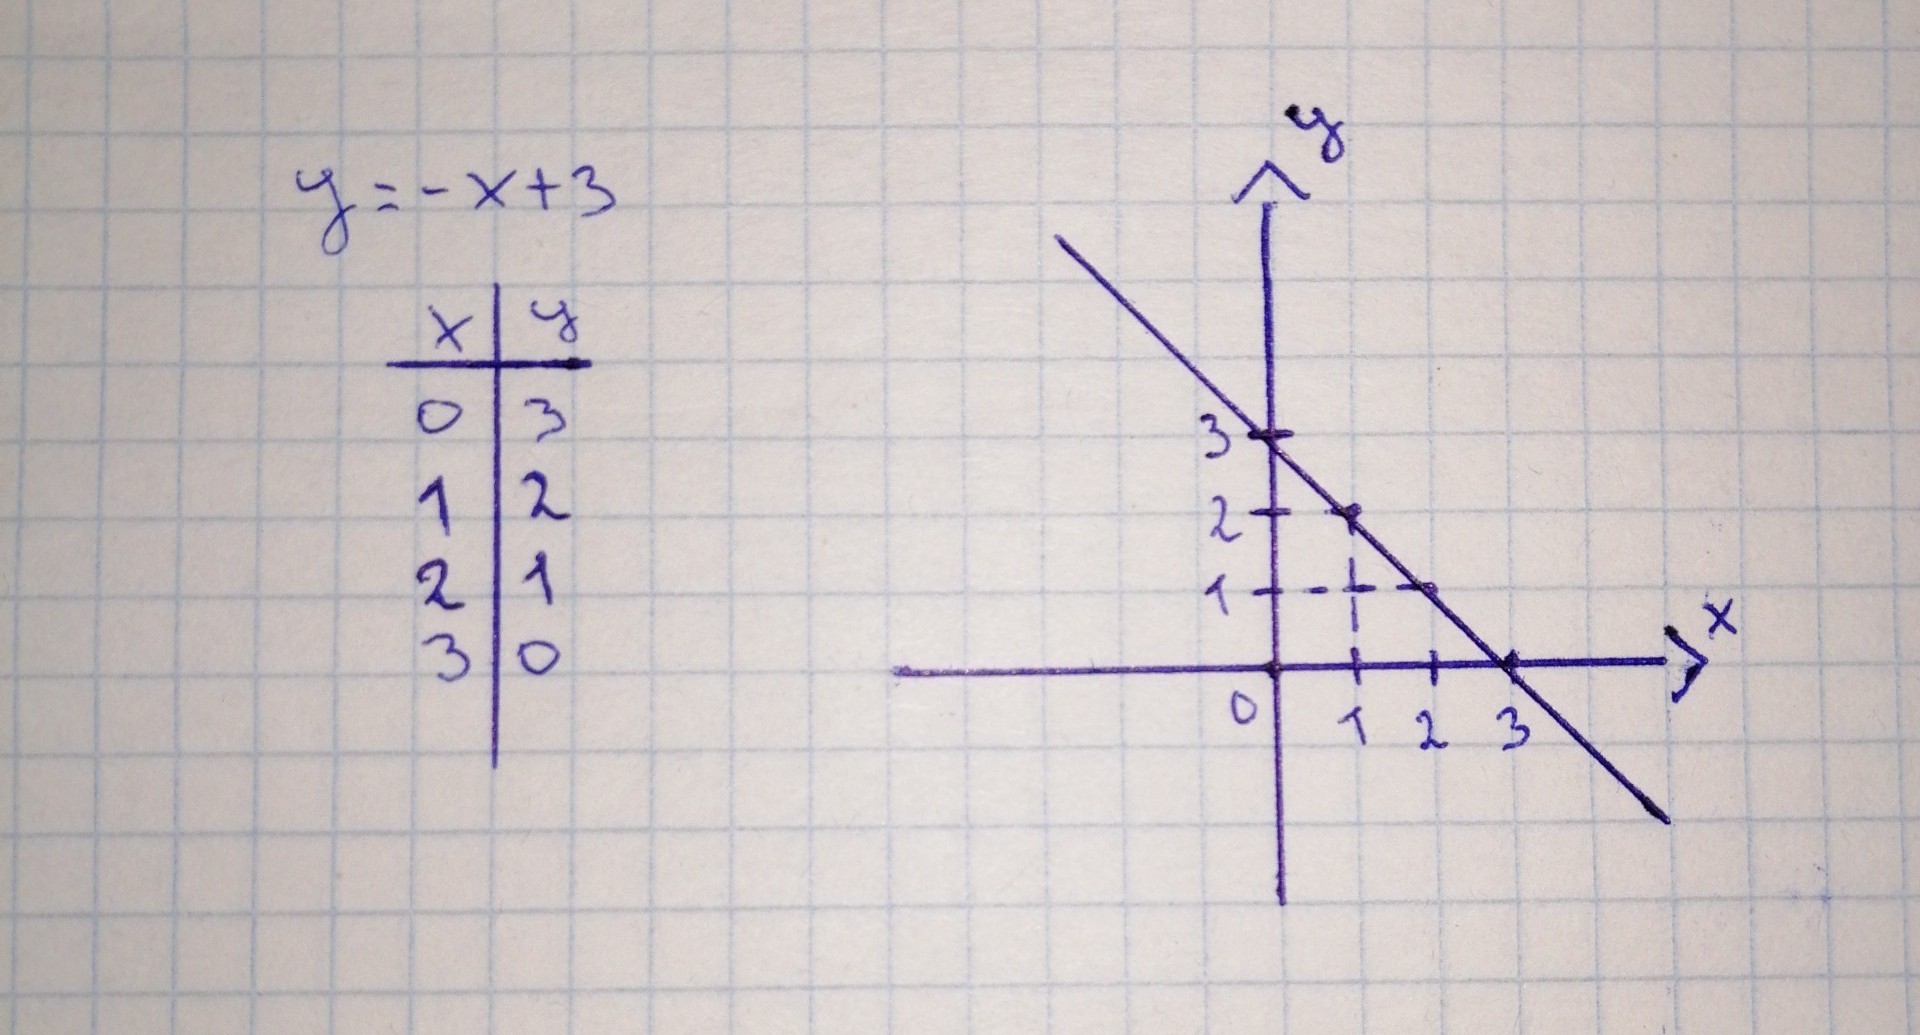 y=-x+3
x y
0 3
1 2
2 1
3 0
y
3
2
1
x
0 1 2 3